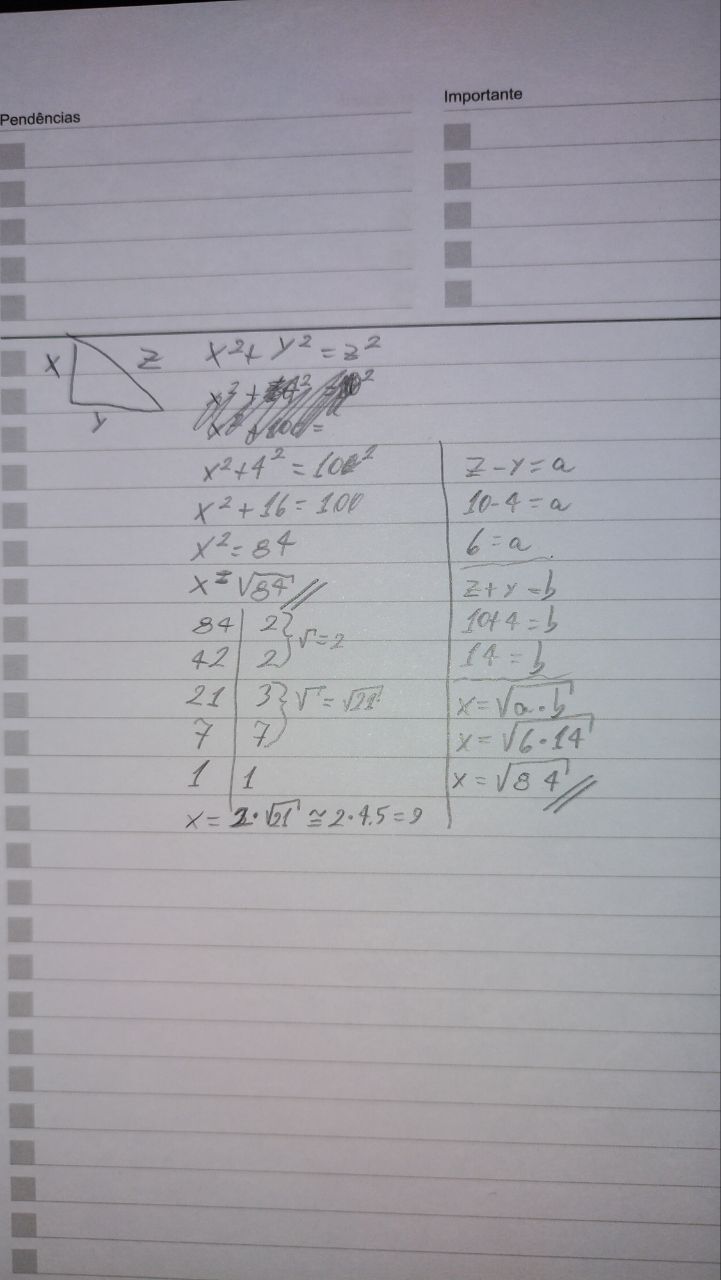 Pendências
Importante
X
Z
Y
X² + Y² = Z²
X² + 4² = 10²
X² + 16 = 100
X² = 84
X = √84
84 | 2
42 | 2
} √ = 2
21 | 3
7 | 7
} √ = √21
1 | 1
X = 2·√21 ≅ 2·4.5 = 9
Z - Y = a
10 - 4 = a
6 = a
Z + Y = b
10 + 4 = b
14 = b
X = √a·b
X = √6·14
X = √84